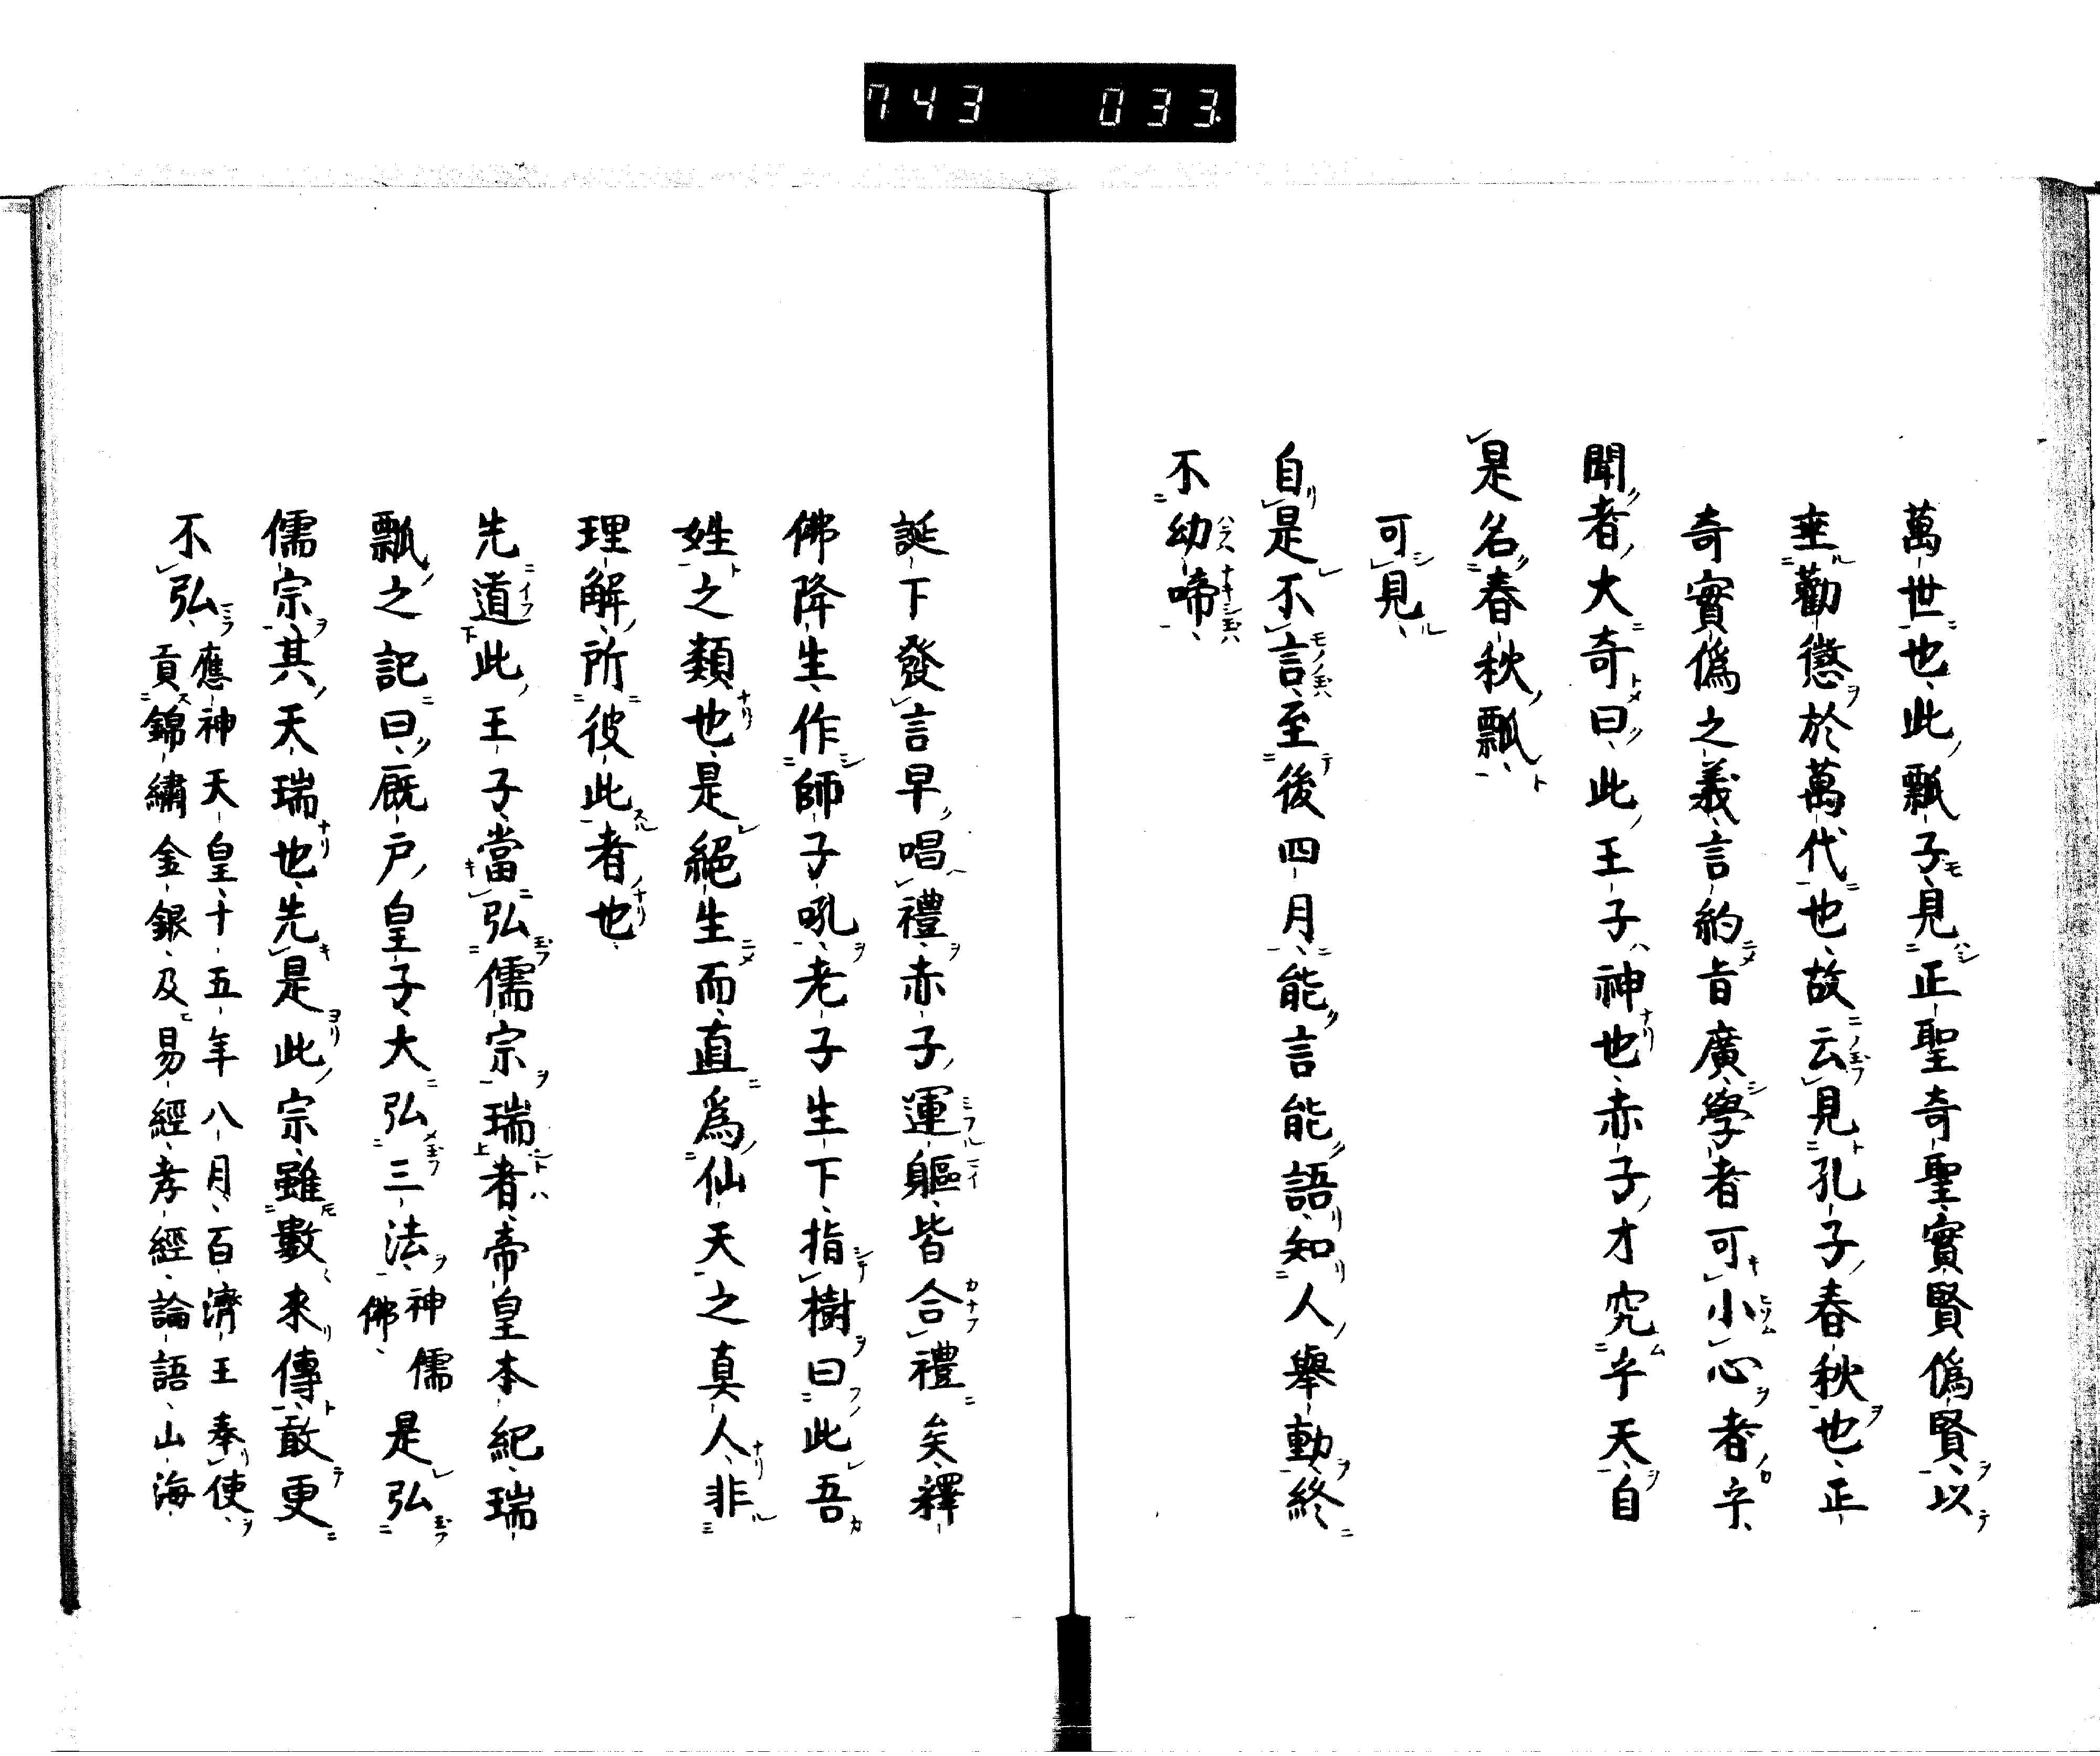 743 033.
萬世也此瓢子見正聖奇聖實賢僞賢以
垂勸懲於萬代也故云見孔子春秋也正
奇實僞之義言約旨廣學者可小心者乎
聞者大奇曰此王子神也赤子才究乎天自
是名春秋瓢
可見
自是不言至後四月能言能語知人舉動終
不幼啼
誕下發言早唱禮赤子運軀皆合禮矣釋
佛降生作師子吼老子生下指樹曰此吾
姓之類也是絕生而直爲仙天之真人非
理解所彼此者也
先道此王子當弘儒宗瑞者帝皇本紀瑞
瓢之記曰厩戸皇子大弘三法神儒佛是弘
儒宗其天瑞也先是此宗雖數來傳敢更
不弘應神天皇十五年八月百濟王奉使
貢錦繡金銀及易經孝經論語山海